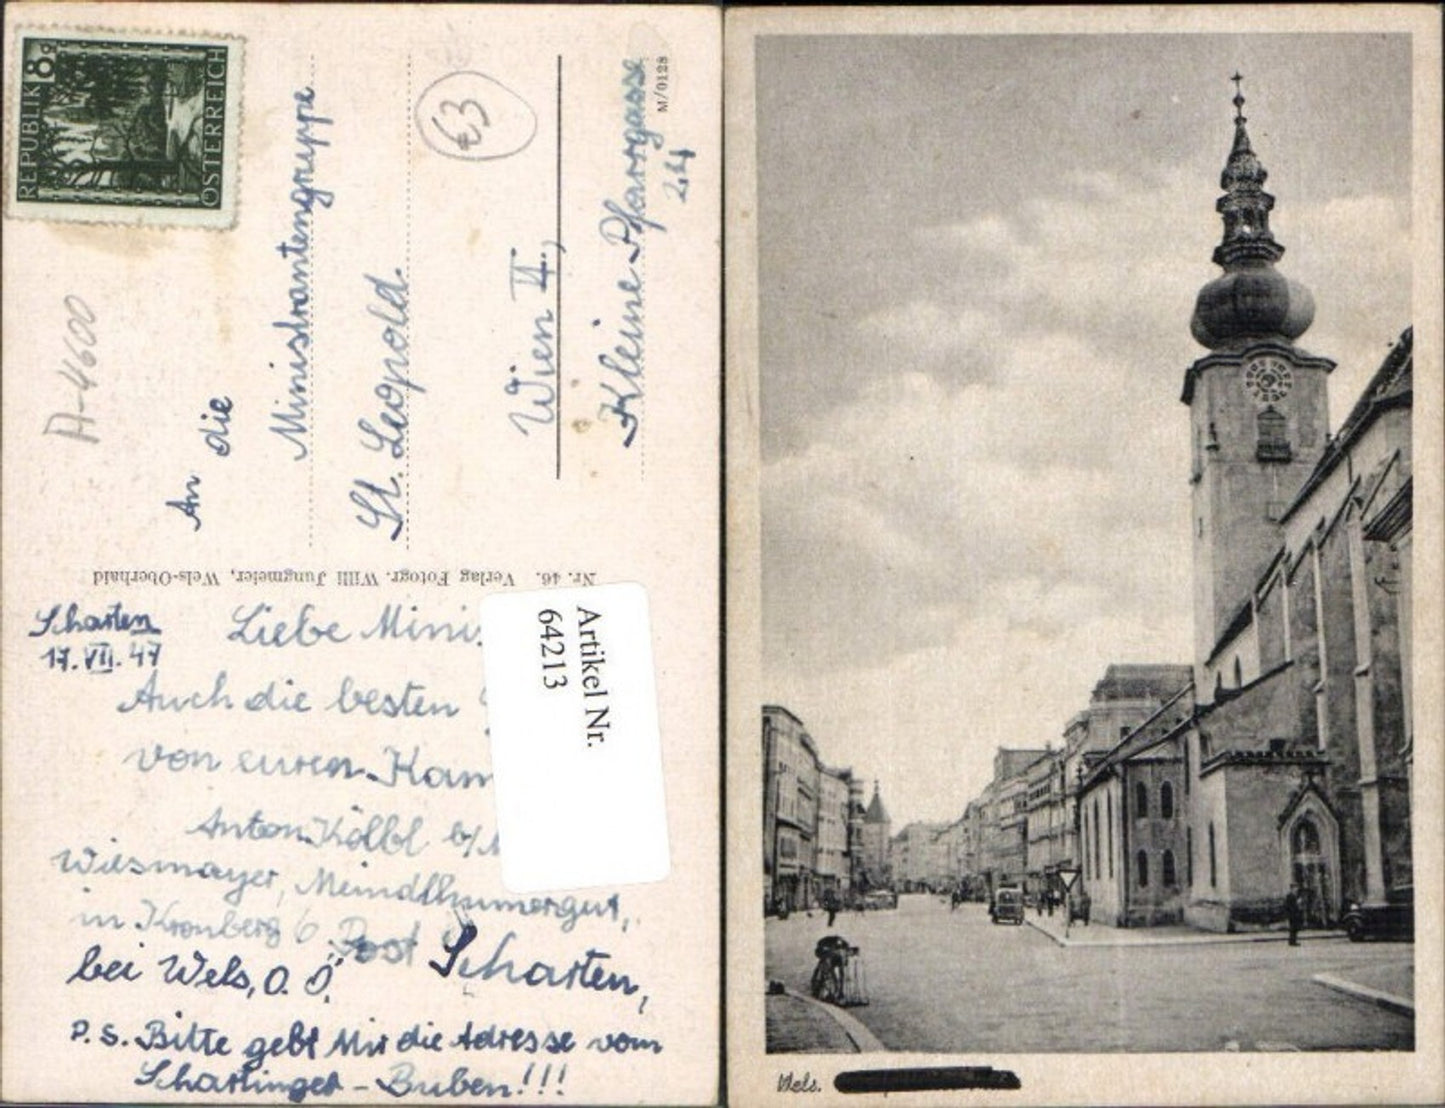 REPUBLIK 8g
ÖSTERREICH
A-4600
63
M/0128
An
die
Ministrantengruppe
St. Leopold.
Wien II.,
Kleine Pfarrgasse
24
Nr. 46. Verlag Fotogr. Willi Jungmeier, Wels-Oberhaid
Artikel Nr.
64213
Scharten
17. VII. 47
Liebe Minis
Auch die besten
von euren Kam
Anton Kölbl b/
Wiesmayer, Meindlhumergut,
in Kronberg 6 Post
bei Wels, O. Ö. Scharten,
P.S. Bitte gebt Mir die Adresse vom
Schartinger - Buben!!!
Wels.